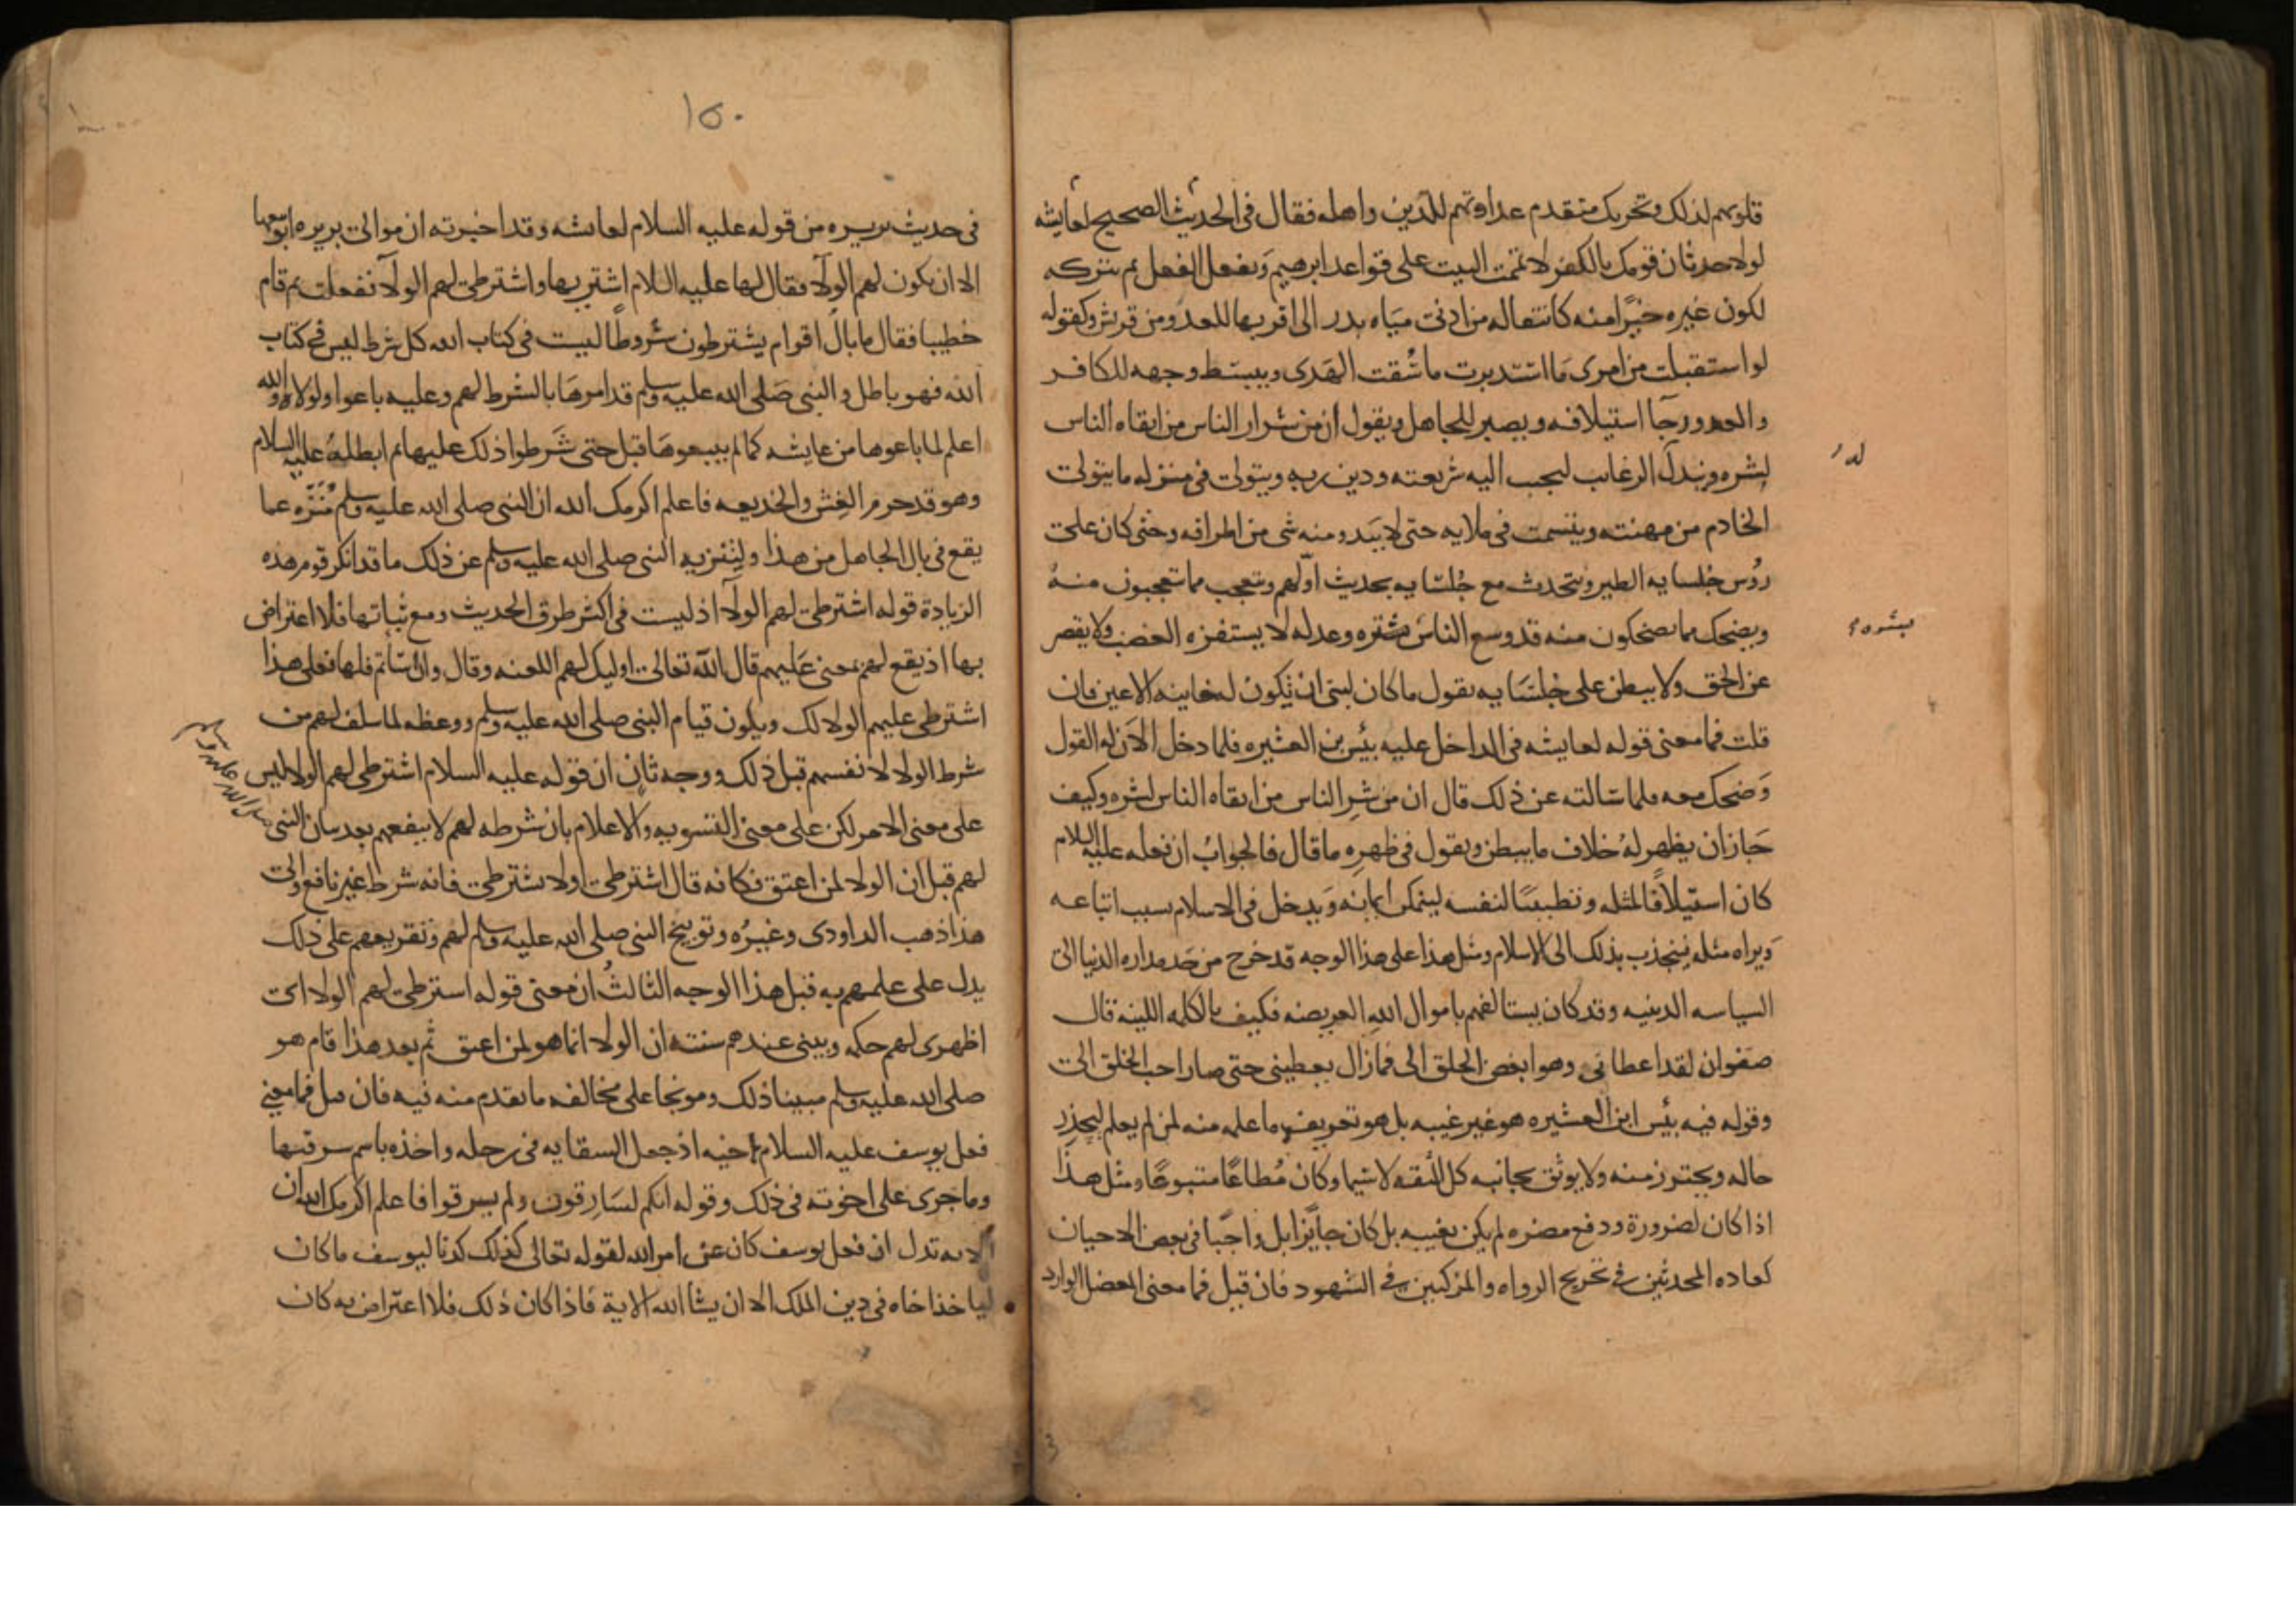 قلوبهم لذلك وتحريك متقدم عداوتهم للدين واهله فقال في الحديث الصحيح لعايشه
لولا حدثان قومك بالكفر لاتممت البيت على قواعد ابرهيم ويفعل الفعل ثم يتركه
لكون غيره خيرًا منه كانتقاله من ادنى مياه بدر الى اقربها للعدو من قريش وكقوله
لو استقبلت من امرى ما استدبرت ما سُقت الهَدى ويبسط وجهه للكافر
والعدو رجآ استيلافه ويصبر للجاهل ويقول ان من شرار الناس من اتقاه الناس
لشره ويبذل له الرغايب ليحبب اليه شريعته ودين ربه ويتولى في منزله ما يتولى
الخادم من مهنته ويتسمت في ملايه حتى لا يَبدو منه شى من اطرافه وحتى كان على
رؤس جُلسايه الطير ويتحدث مع جُلسَايه بحديث اوّلهم ويتعجب مما يتعجبون منهُ
ويضحك مما يضحكون منه قد وسع الناسَ بشره وعدله لا يستفزه الغضب ولا يقصر
عن الحق ولا يبطن على جُلسَايه يقول ما كان لنبى ان تكون له خاينة الاعين فان
قلت فما معنى قوله لعايشه في الداخل عليه بئس بن العشيره فلما دخل الآنَ له القول
وَضحك معه فلما سَالته عن ذلك قال ان من شر الناس من اتقاه الناس لشره وكيف
جَاز ان يظهر لهُ خلاف ما يبطن ويقول في ظهره ما قال فالجوابُ ان فعله عليه السلام
كان استيلافًا لمثله وتطييبًا لنفسه ليتمكن ايمانه وَيدخل في الاسلام بسبب اتباعه
وَيراه مثله فينجذب بذلك الى الاسلام ومثل هذا على هذا الوجه قد خرج من حَد مداراه الدنيا الى
السياسه الدينيه وقد كان يستالفهم باموال الله العريضه فكيف بالكلمه اللينة قال
صفوان لقد اعطانى وهو ابغض الخلق الى فما زال يعطينى حتى صار احب الخلق الى
وقوله فيه بئس ابن العشيره هو غير غيبه بل هو تعريف ما علمه منه لمن لم يعلم ليحذر
حاله ويحترز منه ولا يوثق بجانبه كل الثقه لا سيما وكان مُطاعًا متبوعًا ومثل هذا
اذا كان لضرورة ودفع مضره لم يكن بغيبه بل كان جايزا بل واجبًا في بعض الاحيان
كعاده المحدثين في تجريح الرواه والمزكيين في الشهود فان قيل فما معنى المعضل الوارد
له
بشره
١٥٠
في حديث بريره من قوله عليه السلام لعايشه وقد اخبرته ان موالى بريره ابو بيعها
الا ان يكون لهم الولآ فقال لها عليه السلام اشتريها واشترطى لهم الولآ ففعلت ثم قام
خطيبا فقال ما بال اقوام يشترطون شروطًا ليست في كتاب الله كل شرط ليس في كتاب
الله فهو باطل والنبى صَلى الله عليه وسلم قد امرهَا بالشرط لهم وعليه باعوا ولولاه والله
اعلم لما باعوها من عايشه كما لم يبيعوهَا قبل حتى شَرطوا ذلك عليها ثم ابطلهُ عليه السلام
وهو قد حرم الغِش والخديعه فاعلم اكرمك الله ان النبى صلى الله عليه وسلم مُنَزه عما
يقع في بال الجاهل من هذا ولتنزيه النبى صلى الله عليه وسلم عن ذلك ما قد انكر قوم هذه
الزيادة قوله اشترطى لهم الولآ اذ ليست في اكثر طرق الحديث ومع ثباتها فلا اعتراض
بها اذ يقع لهم بمعنى عَليهم قال الله تعالى اوليك لهم اللعنه وقال وان اسَاتم فلها فعلى هذا
اشترطى عليهم الولا لك ويكون قيام النبى صلى الله عليه وسلم ووعظه لما سلف لهم من
شرط الولا لا نفسهم قبل ذلك ووجه ثانٍ ان قوله عليه السلام اشترطى لهم الولا ليس
على معنى الامر لكن على معنى التسويه والاعلام بان شرطه لهم لا ينفعهم بعد بيان النبى
صلى الله عليه وسلم
لهم قبل ان الولا لمن اعتق فكانه قال اشترطى اولا تشترطى فانه شرط غير نافع والى
هذا ذهب الداودى وغيرُه وتوبيخ النبى صلى الله عليه وسلم لهم وتقريعهم على ذلك
يدل على علمهم به قبل هذا الوجه الثالثُ ان معنى قوله اشترطى لهم الولا اى
اظهرى لهم حكمه وبينى عندهم سنته ان الولا انما هو لمن اعتق ثم بعد هذا قام هو
صلى الله عليه وسلم مبينا ذلك وموبخا على مخالفه ما تقدم منه فيه فان قيل فما معنى
فعل يوسف عليه السلام باخيه اذ جعل السقايه في رحله واخذه باسم سرقتها
وما جرى على اخوته في ذلك وقوله انكم لسَارقون ولم يسرقوا فاعلم اكرمك الله ان
الايه تدل ان فعل يوسف كان عن امر الله لقوله تعالى كذلك كدنا ليوسف ما كان
لياخذ اخاه في دين الملك الا ان يشآ الله الاية فاذا كان ذلك فلا اعتراض به كان